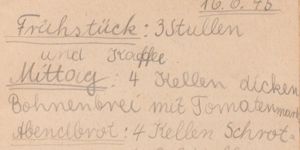 16.6.45
Frühstück: 3 Stullen
und Kaffee
Mittag: 4 Kellen dicken
Bohnenbrei mit Tomatenmark
Abendbrot: 4 Kellen Schrot-